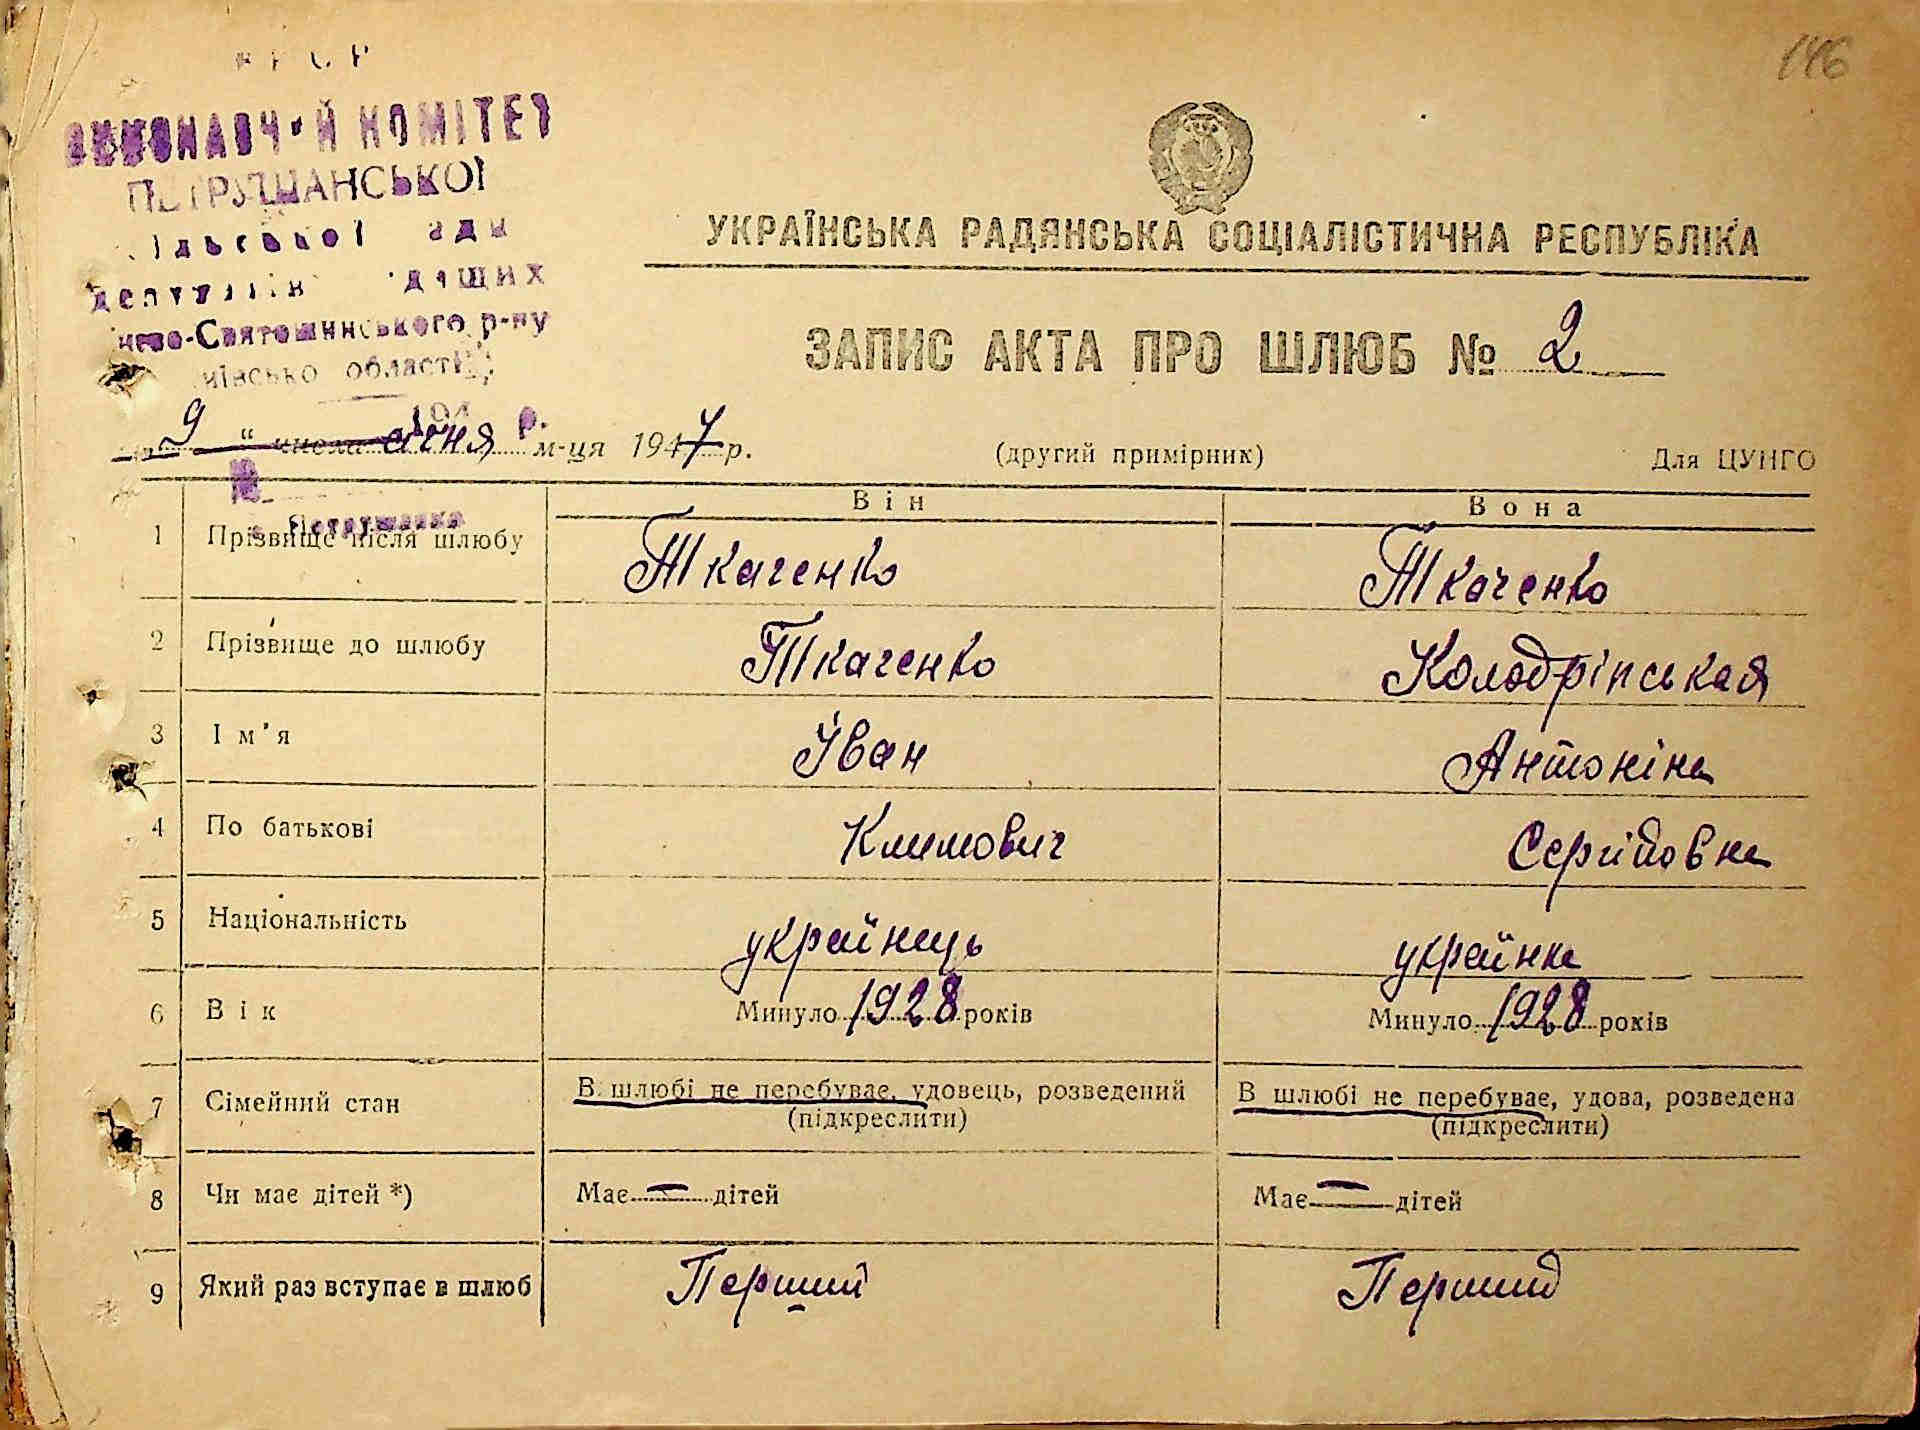 146
КОМІТЕТ
ПЕТРУШАНСЬКОЇ
Святошинського р-ну
області
УКРАЇНСЬКА РАДЯНСЬКА СОЦІАЛІСТИЧНА РЕСПУБЛІКА
ЗАПИС АКТА ПРО ШЛЮБ № 2
9 " числа січня м-ця 1947 р.
(другий примірник)
Для ЦУНГО
Він
Вона
1 Прізвище після шлюбу Ткаченко Ткаченко
2 Прізвище до шлюбу Ткаченко Колодріпськая
3 Ім'я Іван Антоніна
4 По батькові Климович Сергійовна
5 Національність українець українка
6 Вік Минуло 1928 років Минуло 1928 років
7 Сімейний стан В шлюбі не перебуває, удовець, розведений В шлюбі не перебуває, удова, розведена
(підкреслити) (підкреслити)
8 Чи має дітей *) Має — дітей Має — дітей
9 Який раз вступає в шлюб Перший Перший